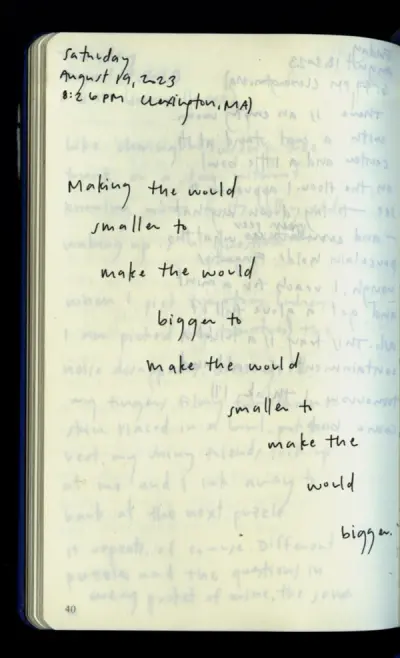 Saturday
August 19, 2023
8:26 PM (Lexington, MA)
Making the world
smaller to
make the world
bigger to
make the world
smaller to
make the
world
bigger.
40